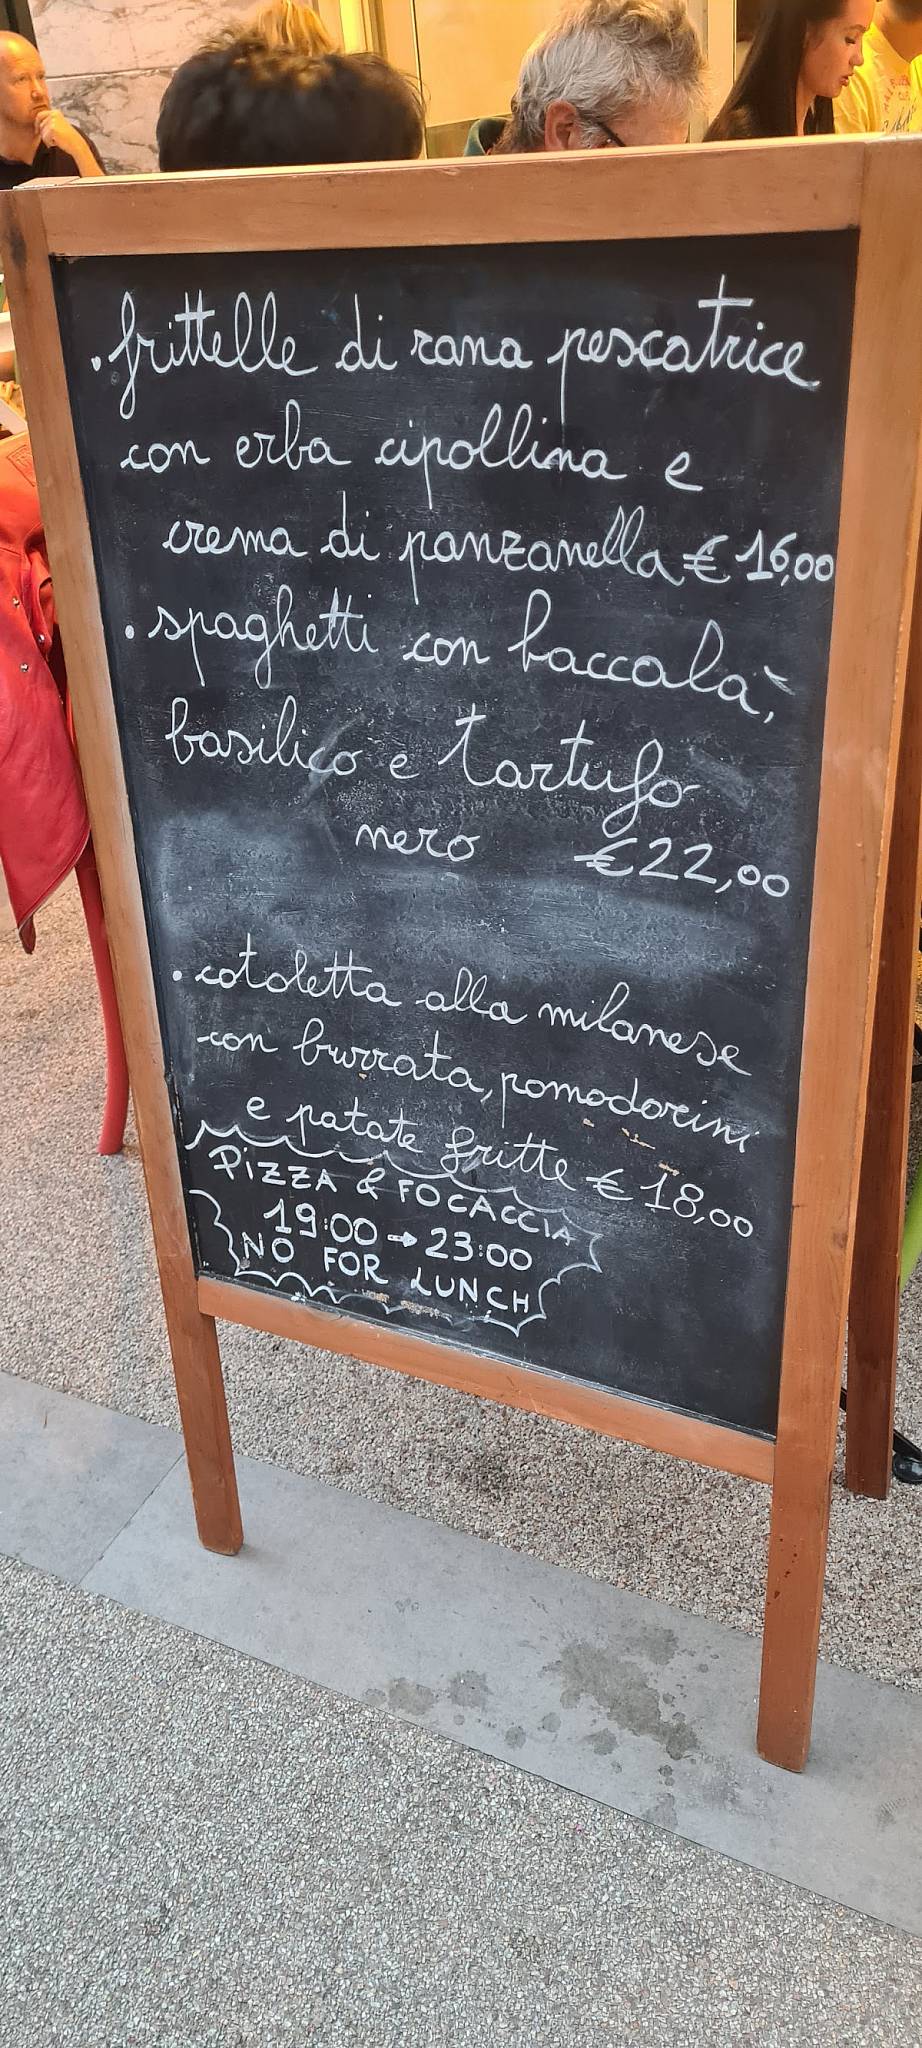 • frittelle di rana pescatrice
con erba cipollina e
crema di panzanella € 16,00
• spaghetti con baccalà,
basilico e tartufo
nero € 22,00
• cotoletta alla milanese
con burrata, pomodorini
e patate fritte € 18,00
PIZZA & FOCACCIA
19:00 → 23:00
NO FOR LUNCH